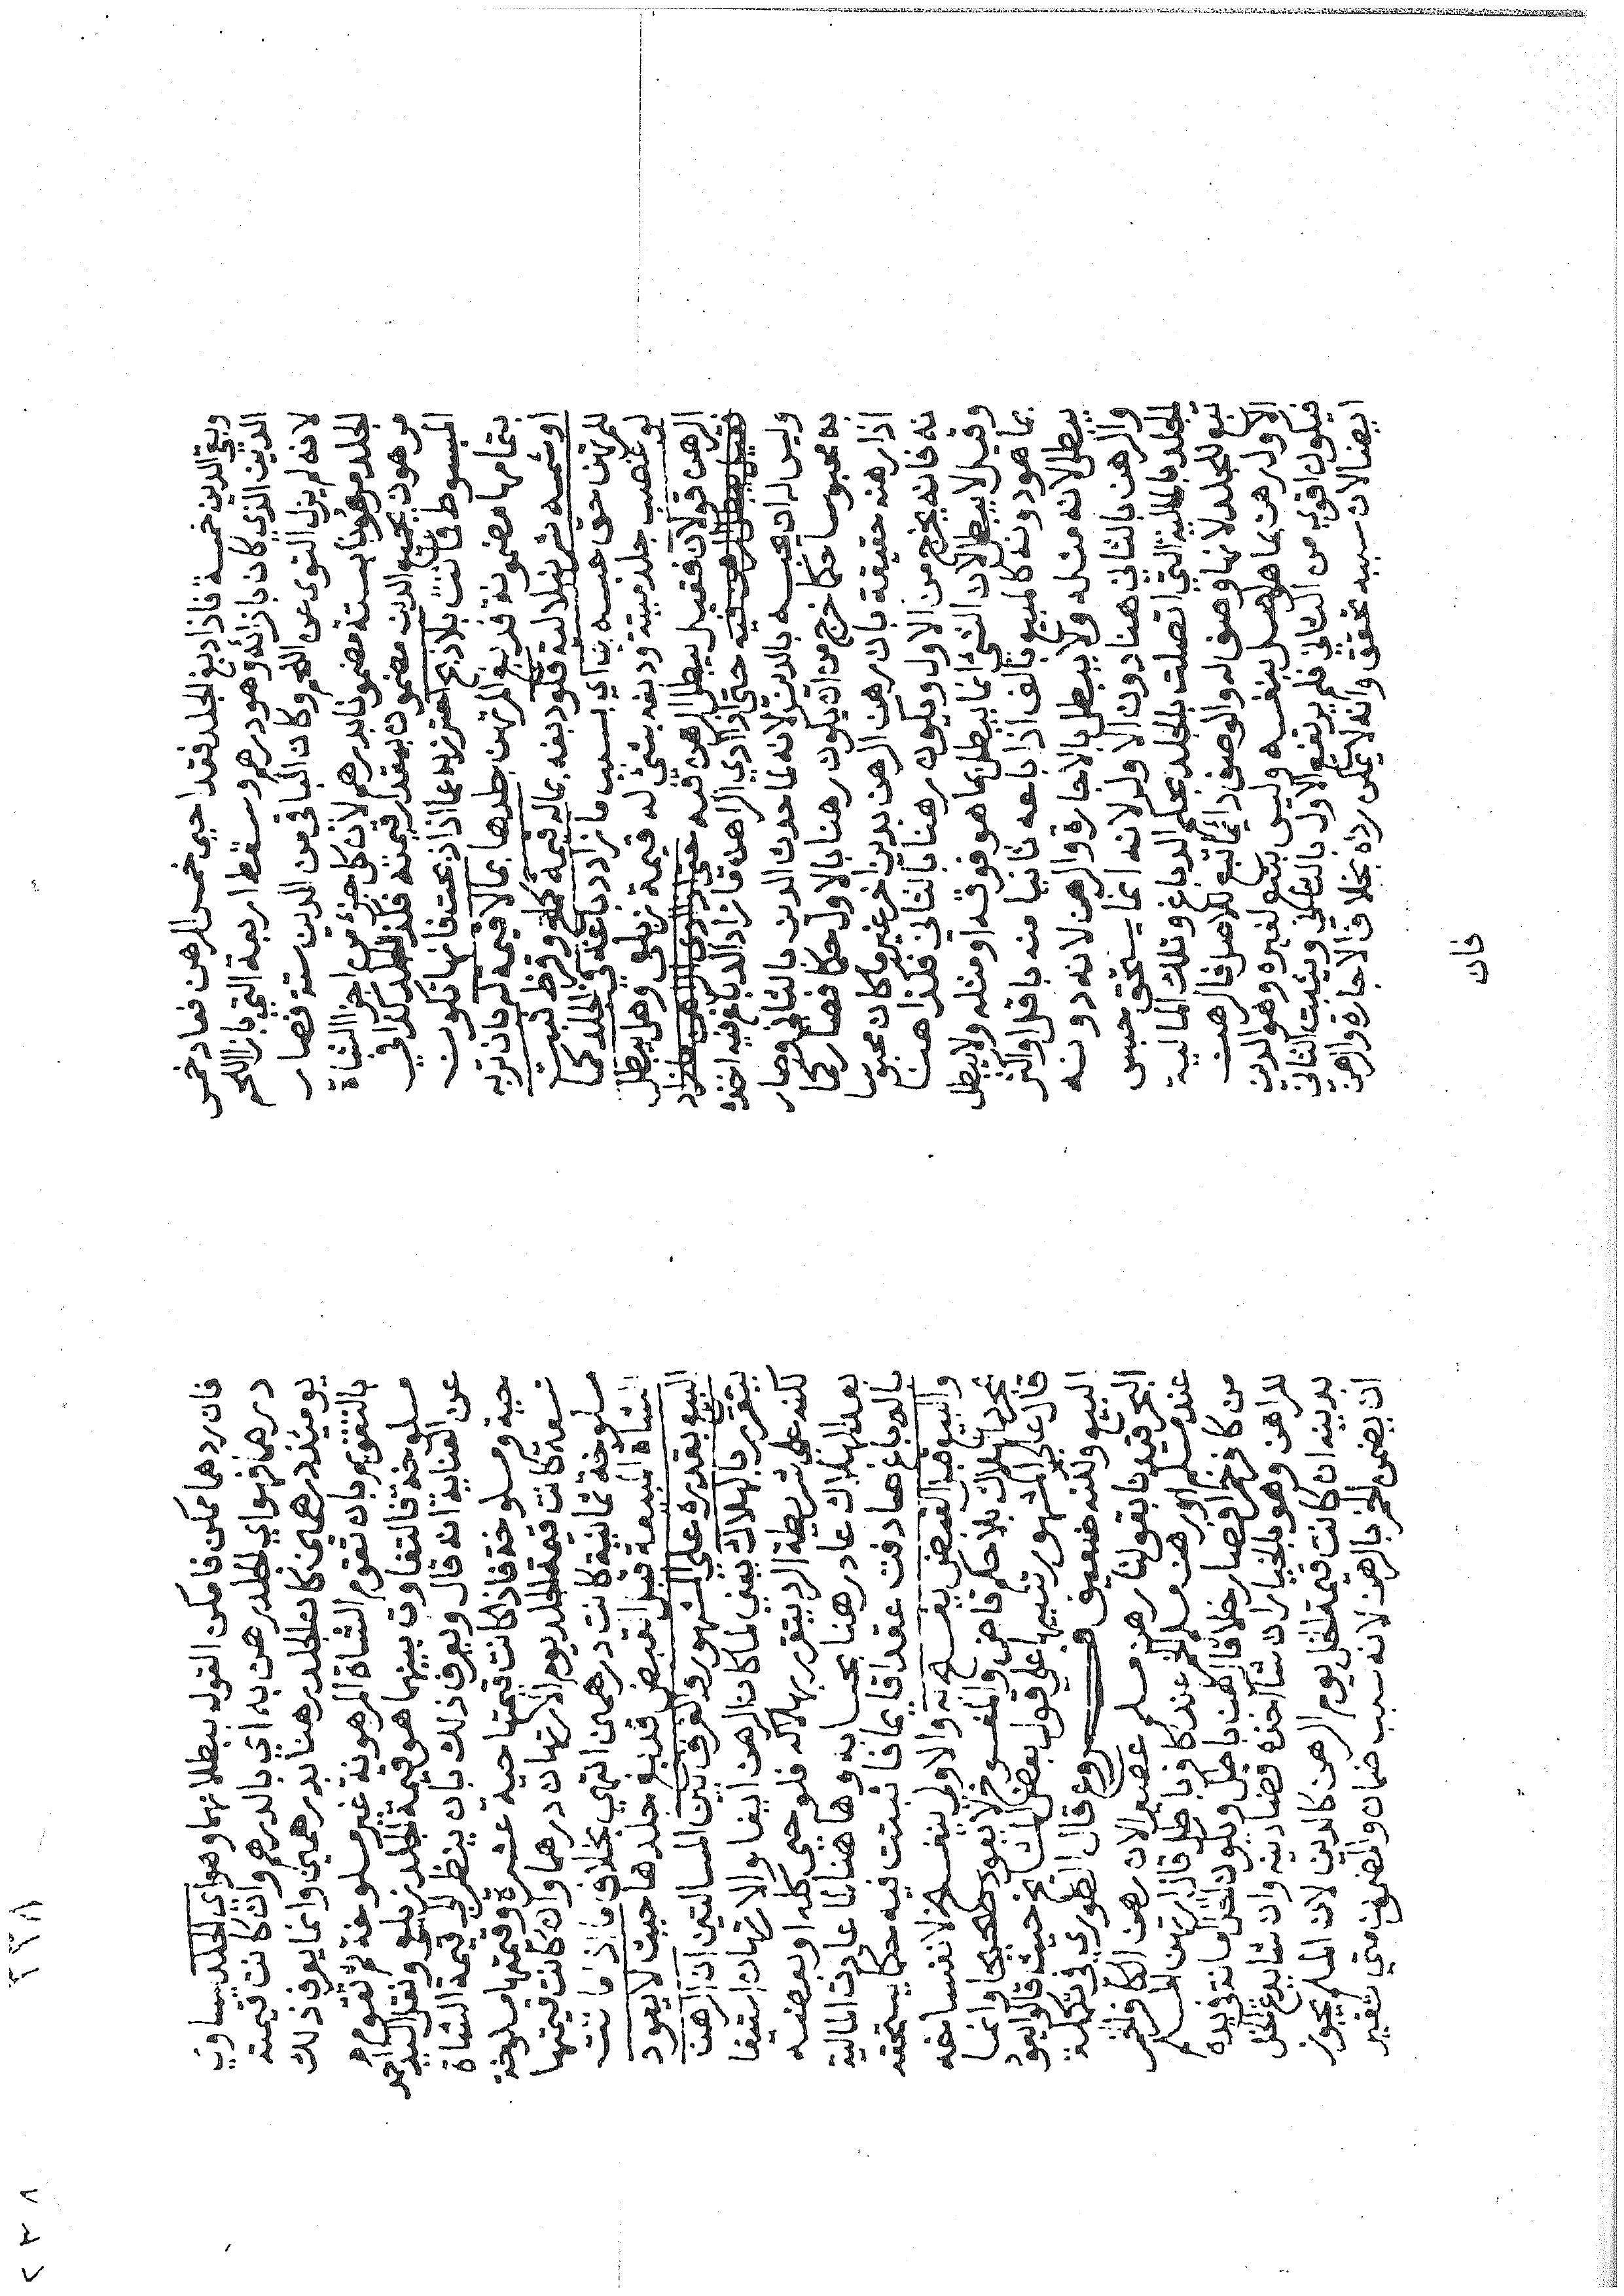 وبقي الدين خمسة فاذا دبغ الجلد فقد احيى خمس الرهن فعاد خمس
الدين الذي كان بازائه وهو درهم وسقط اربعة التي بازا اللحم
لانه لم يزل التوى عن اللحم وكان الباقي من الدين ستة فصار
الجلد مرهونا بستة مضمونا بدرهم لان كل جزء من اجزا الشاة
مرهون بجميع الدين مضمون بمقدار قيمته فكذا الجلد كذا في
المبسوط فماتت بلا ذبح احترز به عما اذا ذبحت فانها تكون
بتمامها مضمونة فدبغ المرتهن جلدها بما لا قيمة له بان تربه
او شمسه شرنبلالية فلو دبغه بماله قيمة كملح وقرظ ثبت
للمرتهن حق حبسه به اي بسبب ما زاد دباغه في الجلد كما
لو غصب جلد ميتة ودبغه بشئ له قيمة زيلعي وهل يبطل
الرهن قولان فقيل يبطل الرهن فيه حتى لو ادي الراهن ما زاد
فقيل يبطل الرهن فيه حتى اذا ادي الراهن ما زاد الدباغ فيه اخذه
وليس له ان يحبسه بالدين لانه لما حدث الدين بالثاني وصار
به محبوسا حكما خرج من ان يكون رهنا بالاول حكما فصار كما
اذا رهنه حقيقة بان رهن الرهن بدين اخر غير ما كان محبوسا
به فانه يخرج من الاول ويكون رهنا بالثاني فكذا هنا
وقيل لا يبطل لان الشئ انما يبطل بما هو فوقه او مثله ولا يبطل
بما هو دونه كالمبيع بالف اذا باعه ثانيا منه باقل او اكثر
يبطل لانه مثله ولا يبطل بالاجارة والرهن لانه دونه
والرهن بالثاني هنا دون الاول لانه انما يستحق حبس
الجلد بالمالية التي اتصلت بالجلد بحكم الدباغ وتلك المالية
تبع للجلد لانها وصف له والوصف دائما تبع للاصل فالرهن
الاول رهن بما هو اصل بنفسه وليس بتبع لغيره وهو الدين
فيكون اقوي من الثاني فلم يرتفع الاول بالثاني ويثبت الثاني
ايضا لان سببه تحقق وانه لا يمكن رده بخلاف الاجارة والرهن
فان
فان ردهما ممكن فامكن القول ببطلانهما وهو اي الجلد يساوي
درهما فهو اي الجلد رهن به اي بالدرهم وان كانت قيمته
يوميئذ درهمين كان الجلد رهنا بدرهمين وانما يعرف ذلك
بالتقويم بان تقوم الشاة المرهونة غير مسلوخة ثم تقوم
مسلوخة فالتفاوت بينهما هو قيمة الجلد زيلعي ونقل السيد احمد
عن العناية انه قال ويعرف ذلك بان ينظر الي قيمة الشاة
حية ومسلوخة فاذا كانت قيمتها حية عشرة وقيمتها مسلوخة
تسعة كانت قيمة الجلد يوم الارتهان درهما وان كانت قيمتها
مسلوخة ثمانية كانت درهمين انتهي بخلاف ما اذا ماتت
الشاة المبيعة قبل القبض فدبغ جلدها حيث لا يعود
البيع بقدره علي المشهور والفرق بين المسالتين ان الرهن
يتقرر بالهلاك يعني لما كان الرهن ايفا والارتهان استيفا
لكنه علي شريطة الرد يتقرر بهلاكه فلو حيي كله او بعضه
بعد الهلاك عاد رهنا بحسابه وهاهنا لما عادت المالية
بالدباغ صادفت عقدا قايما فاثبتت فيه حكما يستحقه
والبيع قبل القبض يفسخ به والاولي ينفسخ لانفساخه
بمجرد الهلاك بلا حكم قاض والمفسوخ لا يعود صحيحا وانما
قال علي المشهور تنبيها علي قول بعض المشايخ حيث قالوا يعود
البيع ولكنه ضعيف فروع قال الطوري في تكملة
البحر قيدنا بقولنا رهن مسلم عصيرا لان رهن الكافر الخمر
عند مسلم او رهن مسلم الخمر عند كافر باطل فاذا ارتهن المسلم
من كافر خمرا فصار خلا فالرهن باطل ويكون الخل امانة في يده
للراهن وهو بالخيار ان شا اخذه وقضا دينه وان شا يدع الخل
بدينه ان كانت قيمة الخل يوم الرهن كالدين لان المسلم يجوز
ان يضمن الخمر بالرهن لانه سبب ضمان والمضمون متي تغير
٢٣٨